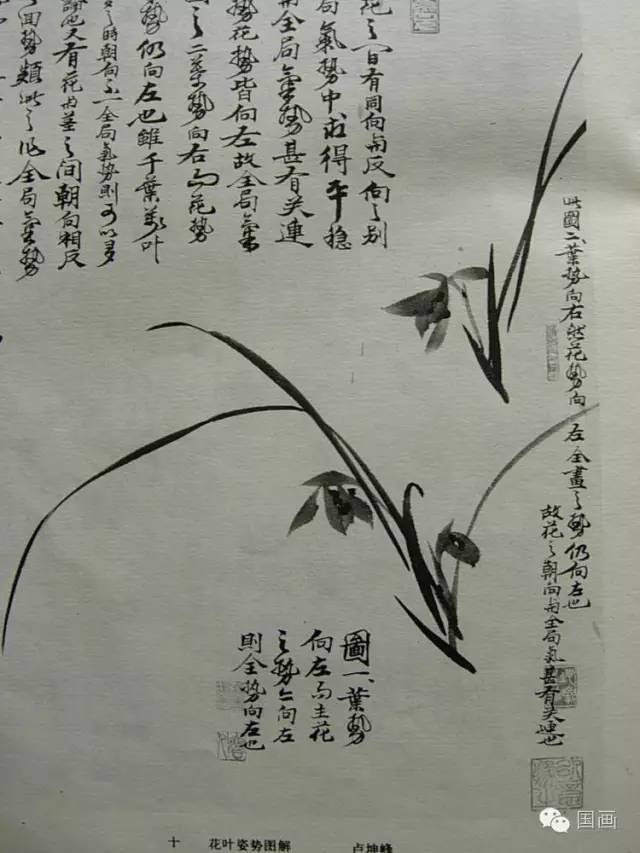 之一曰有同向与反向之别
局氣勢中求得平稳
全局氣勢甚有关連
勢花勢皆向左故全局氣
之二葉勢向右而花勢
勢仍向左也雖千葉萬叶
之時朝向不一全局氣势則可以多
也又有花与茎之间朝向相反
回勢類此之作全局氣勢
此圖二葉勢向右然花勢向左全畫之勢仍向左也
故花之朝向与全局氣甚有关連也
圖一葉勢
向左而主花
之勢亦向左
則全勢向左也
十 花叶姿势图解 卢坤峰
国画